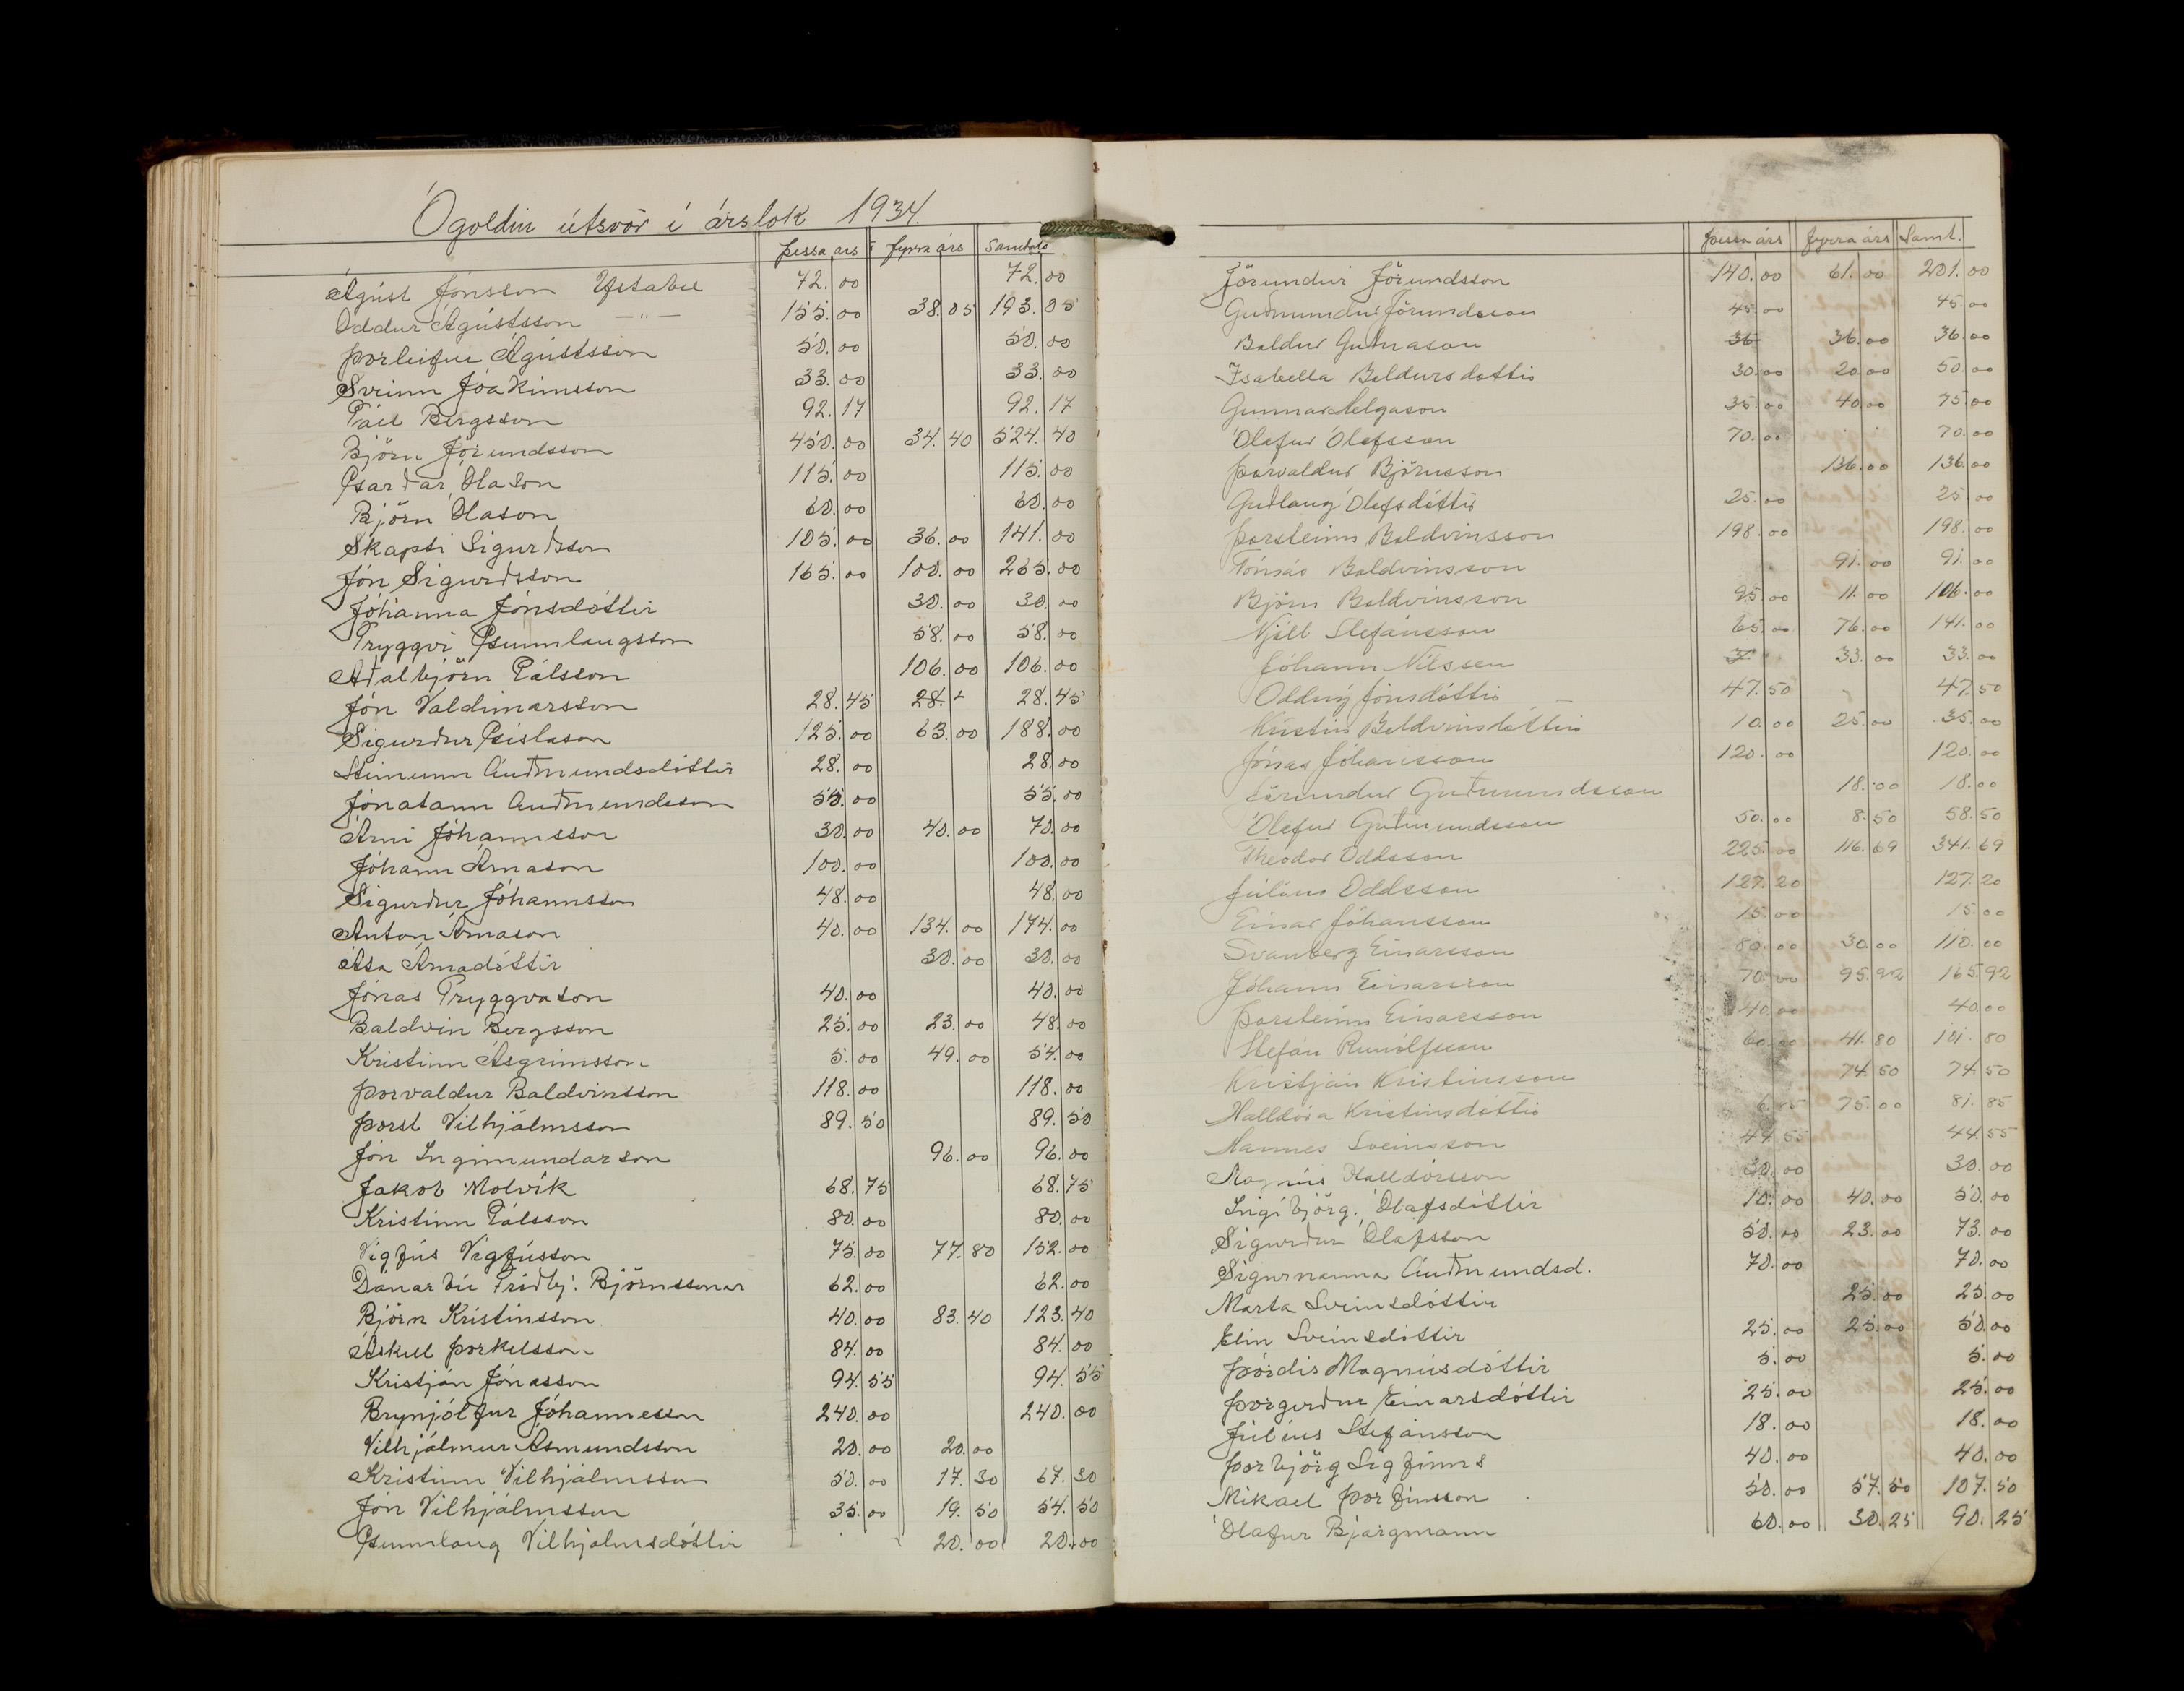 Ógoldin útsvör í árslok 1934.
þessa árs fyrra árs Samtals
Ágúst Jónsson Ystabæ 72.00 72.00
Oddur Ágústsson —"— 155.00 38.05 193.05
Þorleifur Ágústsson 50.00 50.00
Sveinn Jóakimsson 33.00 33.00
Páll Bergsson 92.17 92.17
Björn Jörundsson 450.00 34.40 524.40
Garðar Ólason 115.00 115.00
Björn Ólason 60.00 60.00
Skapti Sigurðsson 105.00 36.00 141.00
Jón Sigurðsson 165.00 100.00 265.00
Jóhanna Jónsdóttir 30.00 30.00
Tryggvi Gunnlaugsson 58.00 58.00
Aðalbjörn Pálsson 106.00 106.00
Jón Valdimarsson 28.45 28. 28.45
Sigurður Gíslason 125.00 63.00 188.00
Steinunn Guðmundsdóttir 28.00 28.00
Jónatann Guðmundsson 55.00 55.00
Árni Jóhannsson 30.00 40.00 70.00
Jóhann Árnason 100.00 100.00
Sigurður Jóhannsson 48.00 48.00
Anton Árnason 40.00 134.00 174.00
Ása Árnadóttir 30.00 30.00
Jónas Tryggvason 40.00 40.00
Baldvin Bergsson 25.00 23.00 48.00
Kristinn Ásgrímsson 5.00 49.00 54.00
Þorvaldur Baldvinsson 118.00 118.00
Þorst Vilhjálmsson 89.50 89.50
Jón Ingimundarson 96.00 96.00
Jakob Molvík 68.75 68.75
Kristinn Pálsson 80.00 80.00
Vigfús Vigfússon 75.00 77.80 152.00
Dánarbú Friðbj. Björnssonar 62.00 62.00
Björn Kristinsson 40.00 83.40 123.40
Áskell Þorkelsson 84.00 84.00
Kristján Jónasson 94.55 94.55
Brynjólfur Jóhannesson 240.00 240.00
Vilhjálmur Ásmundsson 20.00 20.00
Kristinn Vilhjálmsson 50.00 17.30 67.30
Jón Vilhjálmsson 35.00 19.50 54.50
Gunnlaug Vilhjálmsdóttir 20.00 20.00
þessa árs fyrra árs Samt.
Jörundur Jörundsson 140.00 61.00 201.00
Guðmundur Jörundsson 45.00 45.00
Baldur Guðnason 36 36.00 36.00
Isabella Baldursdóttir 30.00 20.00 50.00
Gunnar Helgason 35.00 40.00 75.00
Ólafur Ólafsson 70.00 70.00
Þorvaldur Björnsson 136.00 136.00
Guðlaug Ólafsdóttir 25.00 25.00
Þorsteinn Baldvinsson 198.00 198.00
Tómás Baldvinsson 91.00 91.00
Björn Baldvinsson 95.00 11.00 106.00
Njáll Stefánsson 65.00 76.00 141.00
Jóhann Nilssen 33.00 33.00
Oddný Jónsdóttir 47.50 47.50
Kristín Baldvinsdóttir 10.00 25.00 35.00
Jónas Jóhansson 120.00 120.00
Jörundur Guðmundsson 18.00 18.00
Ólafur Guðmundsson 50.00 8.50 58.50
Theodor Oddsson 225.00 116.69 341.69
Júlíus Oddsson 127.20 127.20
Einar Jóhansson 15.00 15.00
Svanberg Einarsson 80.00 30.00 110.00
Jóhann Einarsson 70.00 95.92 165.92
Þorsteinn Einarsson 40.00 40.00
Stefán Runólfsson 60.00 41.80 101.80
Kristján Kristinsson 74.50 74.50
Halldóra Kristinsdóttir 6.85 75.00 81.85
Hannes Sveinsson 44.55 44.55
Magnús Halldórsson 30.00 30.00
Ingibjörg. Ólafsdóttir 10.00 40.00 50.00
Sigurður Ólafsson 50.00 23.00 73.00
Sigurnanna Guðmundsd. 70.00 70.00
Marta Sveinsdóttir 25.00 25.00
Elín Sveinsdóttir 25.00 25.00 50.00
Þórdís Magnúsdóttir 5.00 5.00
Þorgerður Einarsdóttir 25.00 25.00
Júlíus Stefánsson 18.00 18.00
Þorbjörg Sigfinns 40.00 40.00
Mikael Þorfinsson 50.00 57.50 107.50
Ólafur Bjargmann 60.00 30.25 90.25